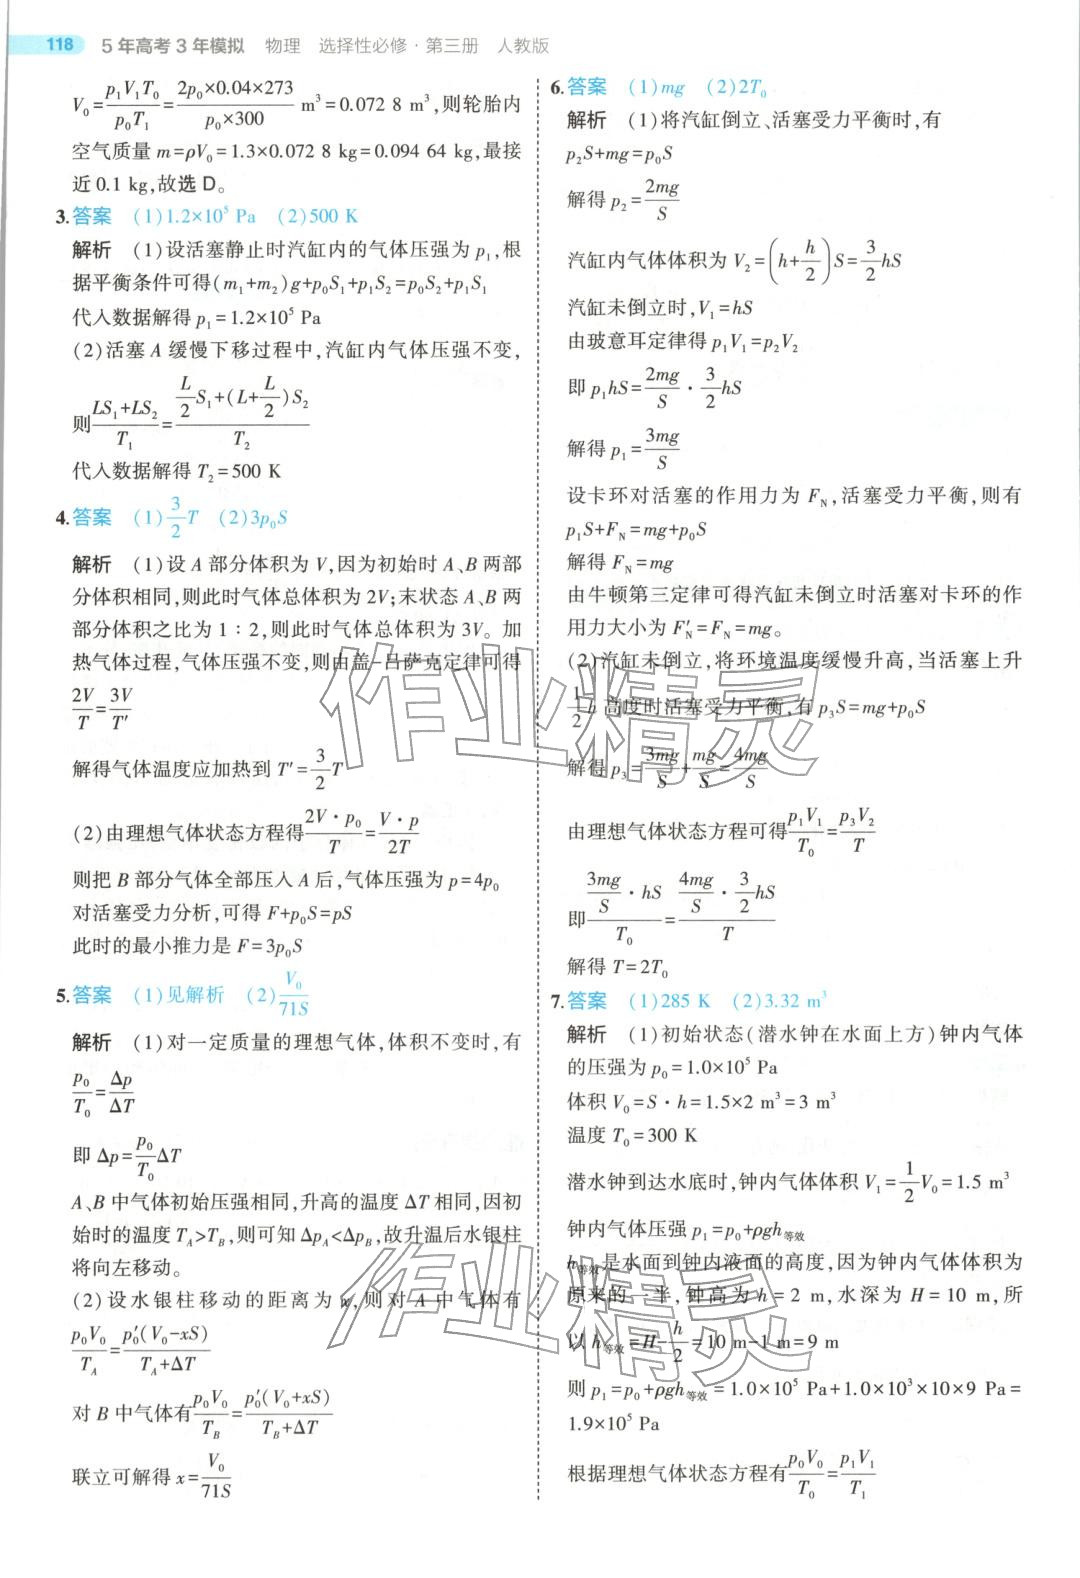 118 5年高考3年模拟 物理 选择性必修·第三册 人教版
V₀=p₁V₁T₀/p₀T₁=2p₀×0.04×273/p₀×300 m³=0.072 8 m³,则轮胎内
空气质量 m=ρV₀=1.3×0.072 8 kg=0.094 64 kg,最接
近0.1 kg,故选 D。
3.答案 (1)1.2×10⁵ Pa (2)500 K
解析 (1)设活塞静止时汽缸内的气体压强为 p₁,根
据平衡条件可得(m₁+m₂)g+p₀S₁+p₁S₂=p₀S₂+p₁S₁
代入数据解得 p₁=1.2×10⁵ Pa
(2)活塞 A 缓慢下移过程中,汽缸内气体压强不变,
则(LS₁+LS₂)/T₁=(L/2 S₁+(L+L/2)S₂)/T₂
代入数据解得 T₂=500 K
4.答案 (1)3/2 T (2)3p₀S
解析 (1)设 A 部分体积为 V,因为初始时 A、B 两部
分体积相同,则此时气体总体积为 2V;末状态 A、B 两
部分体积之比为 1∶2,则此时气体总体积为 3V。加
热气体过程,气体压强不变,则由盖-吕萨克定律可得
2V/T=3V/T′
解得气体温度应加热到 T′=3/2 T
(2)由理想气体状态方程得2V·p₀/T=V·p/2T
则把 B 部分气体全部压入 A 后,气体压强为 p=4p₀
对活塞受力分析,可得 F+p₀S=pS
此时的最小推力是 F=3p₀S
5.答案 (1)见解析 (2)V₀/71S
解析 (1)对一定质量的理想气体,体积不变时,有
p₀/T₀=Δp/ΔT
即 Δp=p₀/T₀ ΔT
A、B 中气体初始压强相同,升高的温度 ΔT 相同,因初
始时的温度 T_A>T_B,则可知 Δp_A<Δp_B,故升温后水银柱
将向左移动。
(2)设水银柱移动的距离为 x,则对 A 中气体有
p₀V₀/T_A=p₀′(V₀-xS)/(T_A+ΔT)
对 B 中气体有p₀V₀/T_B=p₀′(V₀+xS)/(T_B+ΔT)
联立可解得 x=V₀/71S
6.答案 (1)mg (2)2T₀
解析 (1)将汽缸倒立、活塞受力平衡时,有
p₂S+mg=p₀S
解得 p₂=2mg/S
汽缸内气体体积为 V₂=(h+h/2)S=3/2 hS
汽缸未倒立时,V₁=hS
由玻意耳定律得 p₁V₁=p₂V₂
即 p₁hS=2mg/S·3/2 hS
解得 p₁=3mg/S
设卡环对活塞的作用力为 F_N,活塞受力平衡,则有
p₁S+F_N=mg+p₀S
解得 F_N=mg
由牛顿第三定律可得汽缸未倒立时活塞对卡环的作
用力大小为 F′_N=F_N=mg。
(2)汽缸未倒立,将环境温度缓慢升高,当活塞上升
1/2 h 高度时活塞受力平衡,有 p₃S=mg+p₀S
解得 p₃=3mg/S+mg/S=4mg/S
由理想气体状态方程可得p₁V₁/T₀=p₃V₂/T
即(3mg/S·hS)/T₀=(4mg/S·3/2 hS)/T
解得 T=2T₀
7.答案 (1)285 K (2)3.32 m³
解析 (1)初始状态(潜水钟在水面上方)钟内气体
的压强为 p₀=1.0×10⁵ Pa
体积 V₀=S·h=1.5×2 m³=3 m³
温度 T₀=300 K
潜水钟到达水底时,钟内气体体积 V₁=1/2 V₀=1.5 m³
钟内气体压强 p₁=p₀+ρgh等效
h等效是水面到钟内液面的高度,因为钟内气体体积为
原来的一半,钟高为 h=2 m,水深为 H=10 m,所
以 h等效=H-h/2=10 m-1 m=9 m
则 p₁=p₀+ρgh等效=1.0×10⁵ Pa+1.0×10³×10×9 Pa=
1.9×10⁵ Pa
根据理想气体状态方程有p₀V₀/T₀=p₁V₁/T₁
作业精灵
作业精灵